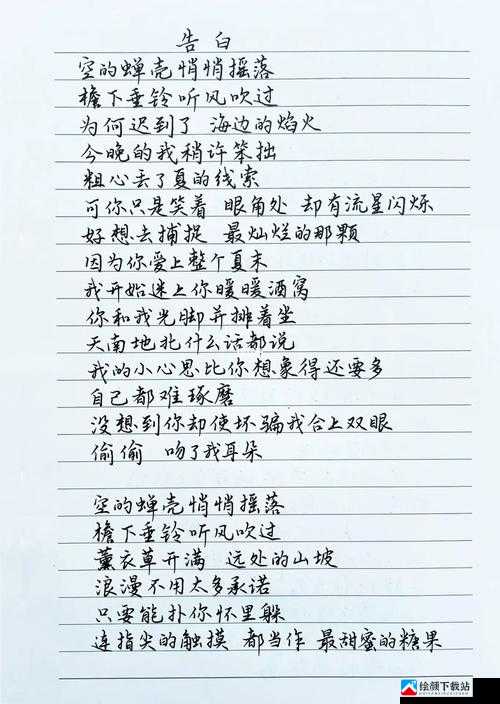 告白
空的蝉壳悄悄摇落
檐下垂铃听风吹过
为何迟到了 海边的焰火
今晚的我稍许笨拙
粗心丢了夏的线索
可你只是笑着 眼角处 却有流星闪烁
好想去捕捉 最灿烂的那颗
因为你爱上整个夏末
我开始迷上你暖暖酒窝
你和我光脚并排着坐
天南地北什么话都说
我的小心思比你想象得还要多
自己都难琢磨
没想到你却使坏骗我合上双眼
偷偷 吻了我耳朵
空的蝉壳悄悄摇落
檐下垂铃听风吹过
薰衣草开满 远处的山坡
浪漫不用太多承诺
只要能扑你怀里躲
连指尖的触摸 都当作 最甜蜜的糖果
绘颜下载站